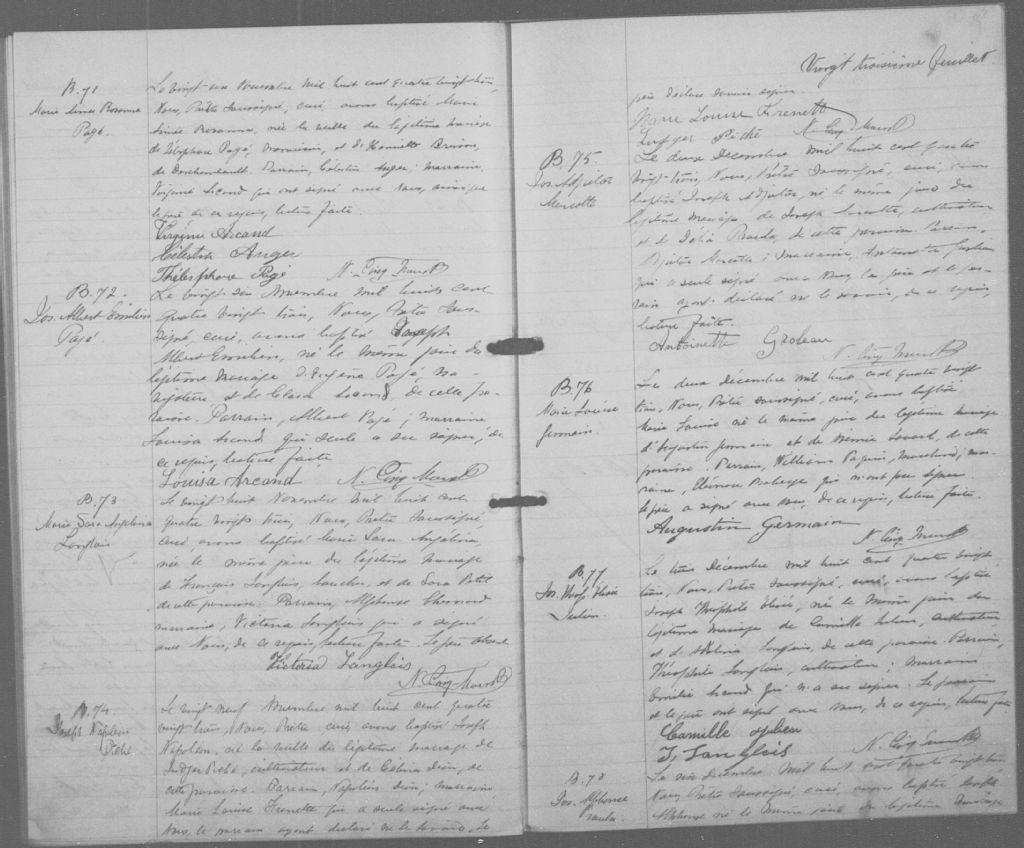 B.71
Marie Aimée Rosanna
Pagé.
Le vingt un Novembre mil huit cent quatre vingt trois,
Nous, Prêtre soussigné, curé, avons baptisé Marie
Aimée Rosanna, née la veille du légitime mariage
de Télesphore Pagé, et d'Henriette
de Deschambault. Parrain, Célestin Auger; marraine,
Virginie Arcand qui ont signé avec Nous, ainsi que
le père de ce requis, lecture faite.
Virginie Arcand
Célestin Auger
Thélesphore Pagé N. Cinq-Mars Ptre
B.72.
Jos. Albert Emilien
Pagé.
Le vingt six Novembre mil huit cent
quatre vingt trois, Nous, Prêtre sous-
signé, curé, avons baptisé Joseph
Albert Emilien, né le même jour du
légitime mariage d'Eugène Pagé, na-
vigateur et de Arcand, de cette pa-
roisse. Parrain, Albert Pagé; marraine
Louisa Arcand qui seule a su signer, de
ce requis, lecture faite.
Louisa Arcand N. Cinq-Mars Ptre
B.73
Marie Sara Angelina
Langlois
Le vingt huit Novembre mil huit cent
quatre vingt trois, Nous, Prêtre soussigné,
curé, avons baptisé Marie Sara Angelina,
née le même jour du légitime mariage
de François Langlois, boucher, et de Sara Petit
de cette paroisse. Parrain, Alphonse
marraine, Victoria Langlois qui a signé
avec Nous, de ce requis, lecture faite. Le père absent
Victoria Langlois
N. Cinq-Mars Ptre
B.74
Joseph Napoléon
Piché
Le vingt neuf Novembre mil huit cent quatre
vingt trois, Nous, Prêtre curé, avons baptisé Joseph
Napoléon, né la veille du légitime mariage de
Ludger Piché, cultivateur et de Célina Dion, de
cette paroisse. Parrain, Napoléon Dion; marraine,
Marie Louise Frenette qui a seule signé avec
Nous, le parrain ayant déclaré ne le savoir. Le
Vingt troisième feuillet.
père déclare savoir signer.
Marie Louise Frenette
Ludger Piché N. Cinq-Mars Ptre
B.75.
Jos. Adjutor
Marcotte
Le deux Décembre mil huit cent quatre
vingt trois, Nous, Prêtre soussigné, curé, avons
baptisé Joseph Adjutor, né le même jour du
légitime mariage de Joseph Marcotte, cultivateur
et de de cette paroisse. Parrain,
Adjutor Marcotte; marraine, Antoinette Groleau
qui a seule signé avec Nous, le père et le par-
rain ayant déclaré ne le savoir, de ce requis,
lecture faite.
Antoinette Groleau
N. Cinq-Mars Ptre
B.76
Marie Louise
Germain.
Le deux Décembre mil huit cent quatre vingt
trois, Nous, Prêtre soussigné, curé, avons baptisé
Marie Louise née le même jour du légitime mariage
d'Augustin Germain et de de cette
paroisse. Parrain, William Paquin, marchand; mar-
raine, Eléonore qui n'ont pu signer
le père a signé avec nous, de ce requis, lecture faite.
Augustin Germain
N. Cinq-Mars Ptre
B.77
Jos. Théop. Elisée
Julien.
Le trois Décembre mil huit cent quatre vingt
trois, Nous, Prêtre soussigné, curé, avons baptisé
Joseph Théophile Elisée, né le même jour du
légitime mariage de Camille Julien, cultivateur
et de Langlois, de cette paroisse. Parrain,
Théophile Langlois, cultivateur; marraine
Arcand qui n'a su signer. Le parrain
et le père ont signé avec nous, de ce requis, lecture faite
Camille Julien
T. Langlois N. Cinq-Mars Ptre
B.78
Jos. Alphonse
Le six décembre mil huit cent quatre vingt trois
Nous, Prêtre soussigné, curé, avons baptisé Joseph
Alphonse né le même jour du légitime mariage